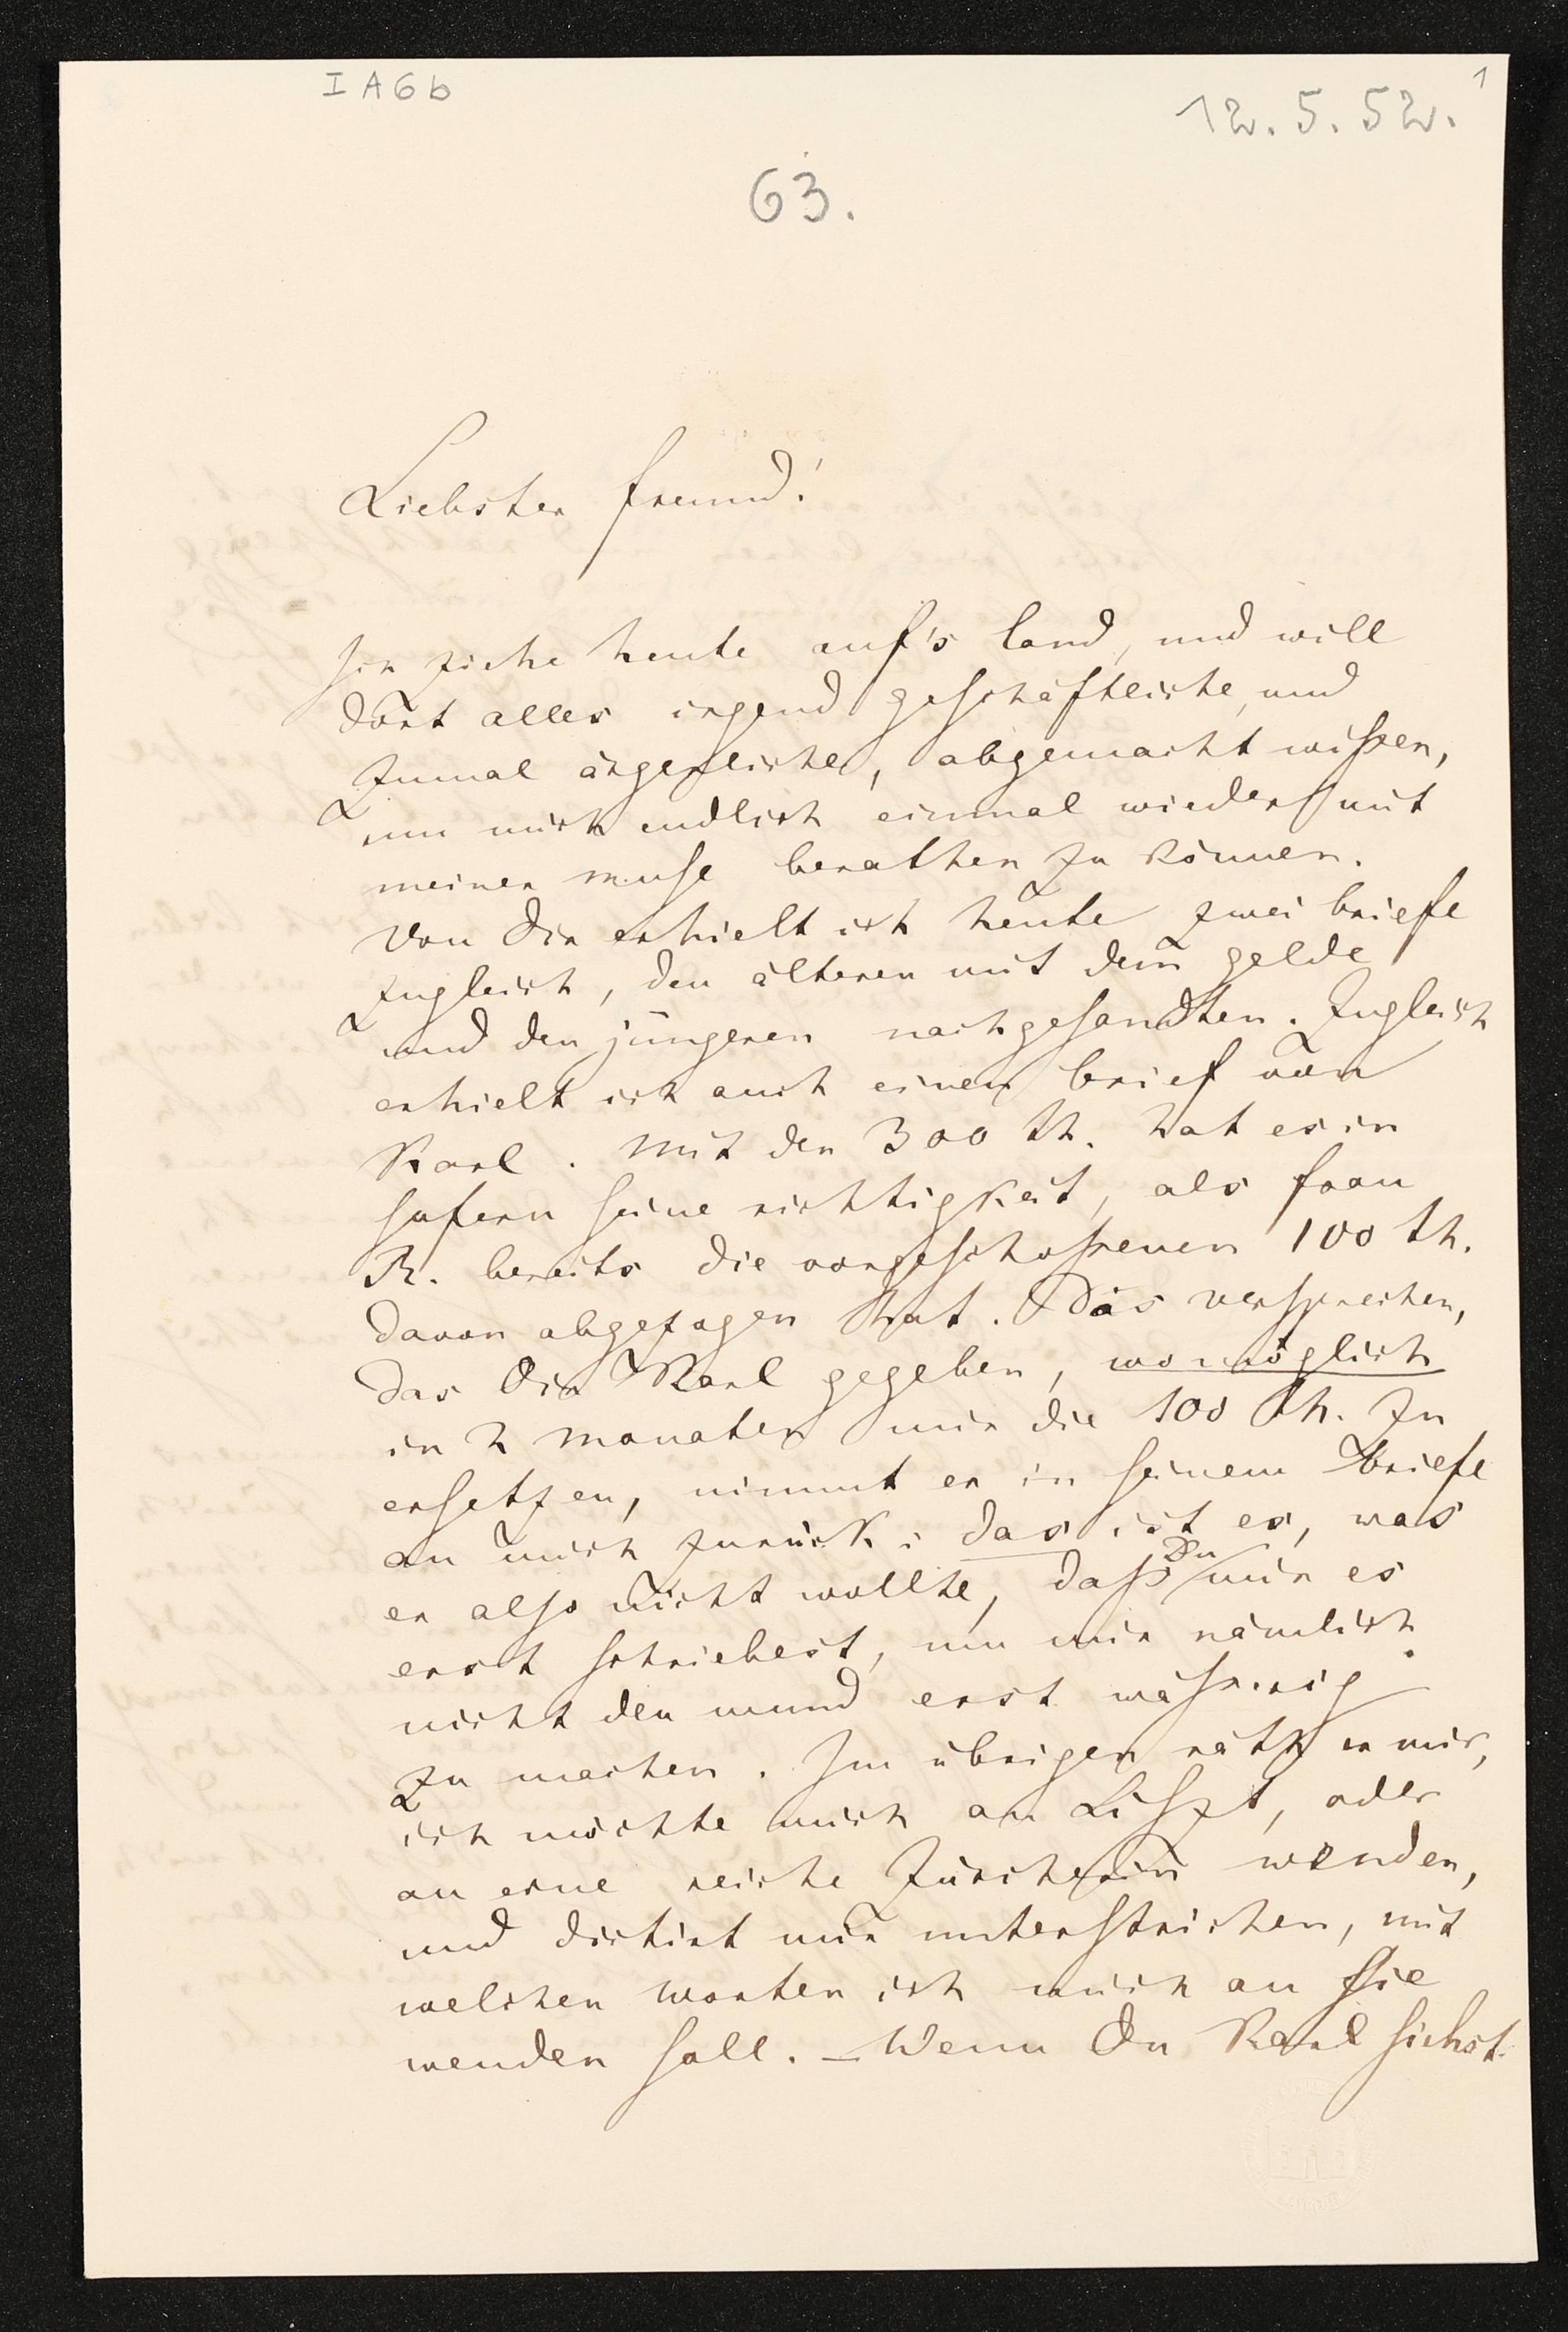 I A 6 b
1
12. 5. 52.
63.
Liebster freund!
Ich ziehe heute auf's land, und will
dort alles irgend geschäftliche, und
zumal ärgerliche, abgemacht wißen,
um mich endlich einmal wieder mit
meiner muse berathen zu können.
Von Dir erhielt ich heute zwei briefe
zugleich, den älteren mit dem gelde
und den jüngeren nachgesandten. Zugleich
erhielt ich auch einen brief von
Karl. Mit den 300 th. hat es in
sofern seine richtigkeit, als frau
R. bereits die vorgeschoßenen 100 th.
davon abgezogen hat. Das versprechen,
das Dir Karl gegeben, wo möglich
in 2 monaten mir die 100 th. zu
ersetzen, nimmt er in seinem briefe
an mich zurück: das ist es, was
er also nicht wollte, daß Du mir es
erst schriebest, um mir nämlich
nicht den mund erst wäßerig
zu machen. Im übrigen räth er mir,
ich möchte mich an Liszt, oder
an eine reiche Züricherin wenden,
und dictirt mir unterstrichen, mit
welchen worten ich mich an sie
wenden soll. – Wenn Du Karl siehst